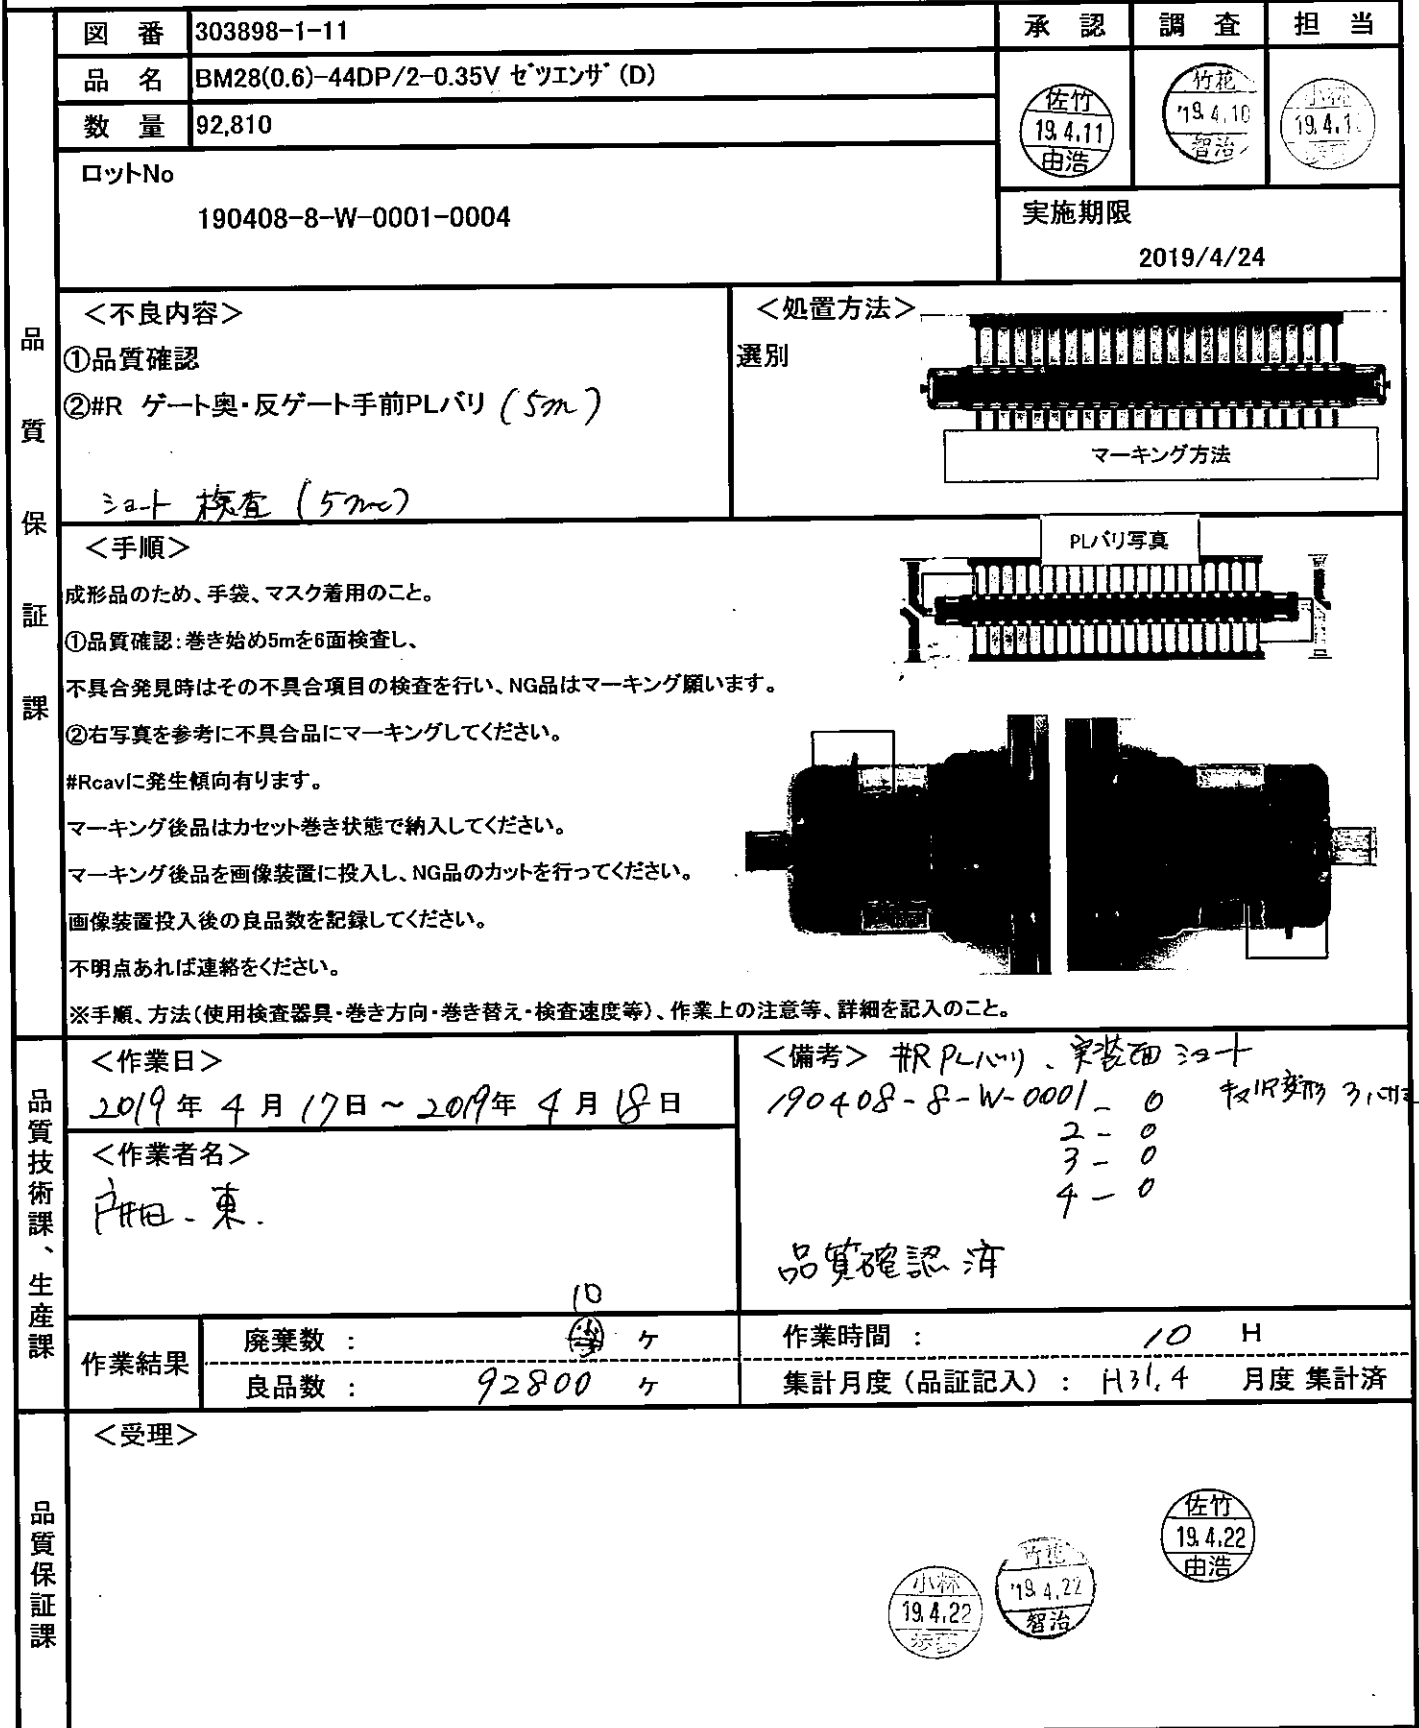 図 番 303898-1-11
承 認 調 査 担 当
品 名 BM28(0.6)-44DP/2-0.35V ゼツエンザ(D)
佐竹 19.4.11 由浩
竹花 '19.4.10 智治
小林
数 量 92,810
ロットNo
190408-8-W-0001-0004
実施期限
2019/4/24
品質保証課
<不良内容>
①品質確認
②#R ゲート奥・反ゲート手前PLバリ (5m)
ショート 検査 (5m)
<処置方法>
選別
マーキング方法
<手順>
PLバリ写真
成形品のため、手袋、マスク着用のこと。
①品質確認:巻き始め5mを6面検査し、
不具合発見時はその不具合項目の検査を行い、NG品はマーキング願います。
②右写真を参考に不具合品にマーキングしてください。
#Rcavに発生傾向有ります。
マーキング後品はカセット巻き状態で納入してください。
マーキング後品を画像装置に投入し、NG品のカットを行ってください。
画像装置投入後の良品数を記録してください。
不明点あれば連絡をください。
※手順、方法(使用検査器具・巻き方向・巻き替え・検査速度等)、作業上の注意等、詳細を記入のこと。
品質技術課、生産課
<作業日>
2019年 4月17日~2019年 4月18日
<作業者名>
東.
<備考> #R PLバリ、実装面 ショート
190408-8-W-0001-0
2-0
3-0
4-0
品質確認済
作業結果
10
廃棄数 : ケ
作業時間 : 10 H
良品数 : 92800 ケ
集計月度(品証記入) : H31.4 月度 集計済
品質保証課
<受理>
佐竹 19.4.22 由浩
竹花 '19.4.22 智治
小林 19.4.22